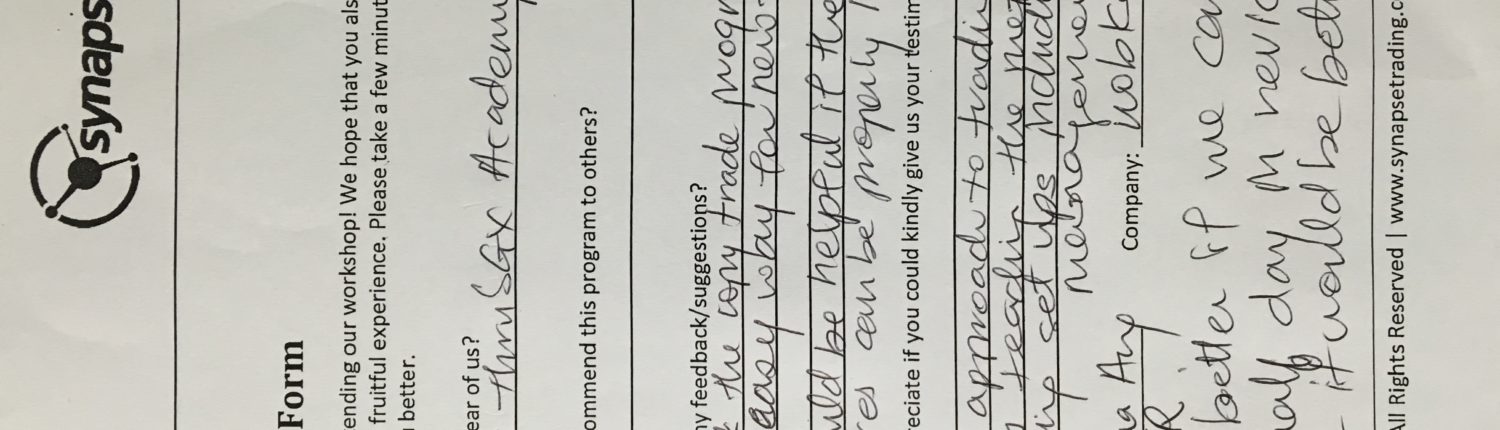 synaps
Form
ending our workshop! We hope that you als
fruitful experience. Please take a few minut
better.
ear of us?
thru SGX Academy
ommend this program to others?
ny feedback/suggestions?
the copy trade progr
easy way for newb
uld be helpful if the
res can be properly
reciate if you could kindly give us your testim
approach to tradin
teaching the met
ing set ups includi
managemen
a Ang Company:
better if we can
half day in
it would be bett
All Rights Reserved | www.synapsetrading.c